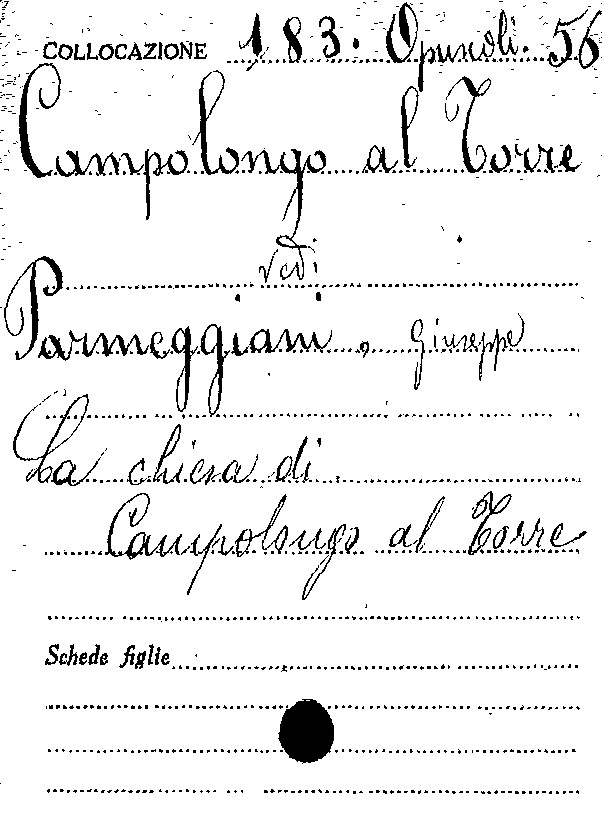 COLLOCAZIONE 183. Opuscoli. 56
Campolongo al Torre
Vedi
Parmeggiani, Giuseppe
La chiesa di
Campolongo al Torre
Schede figlie